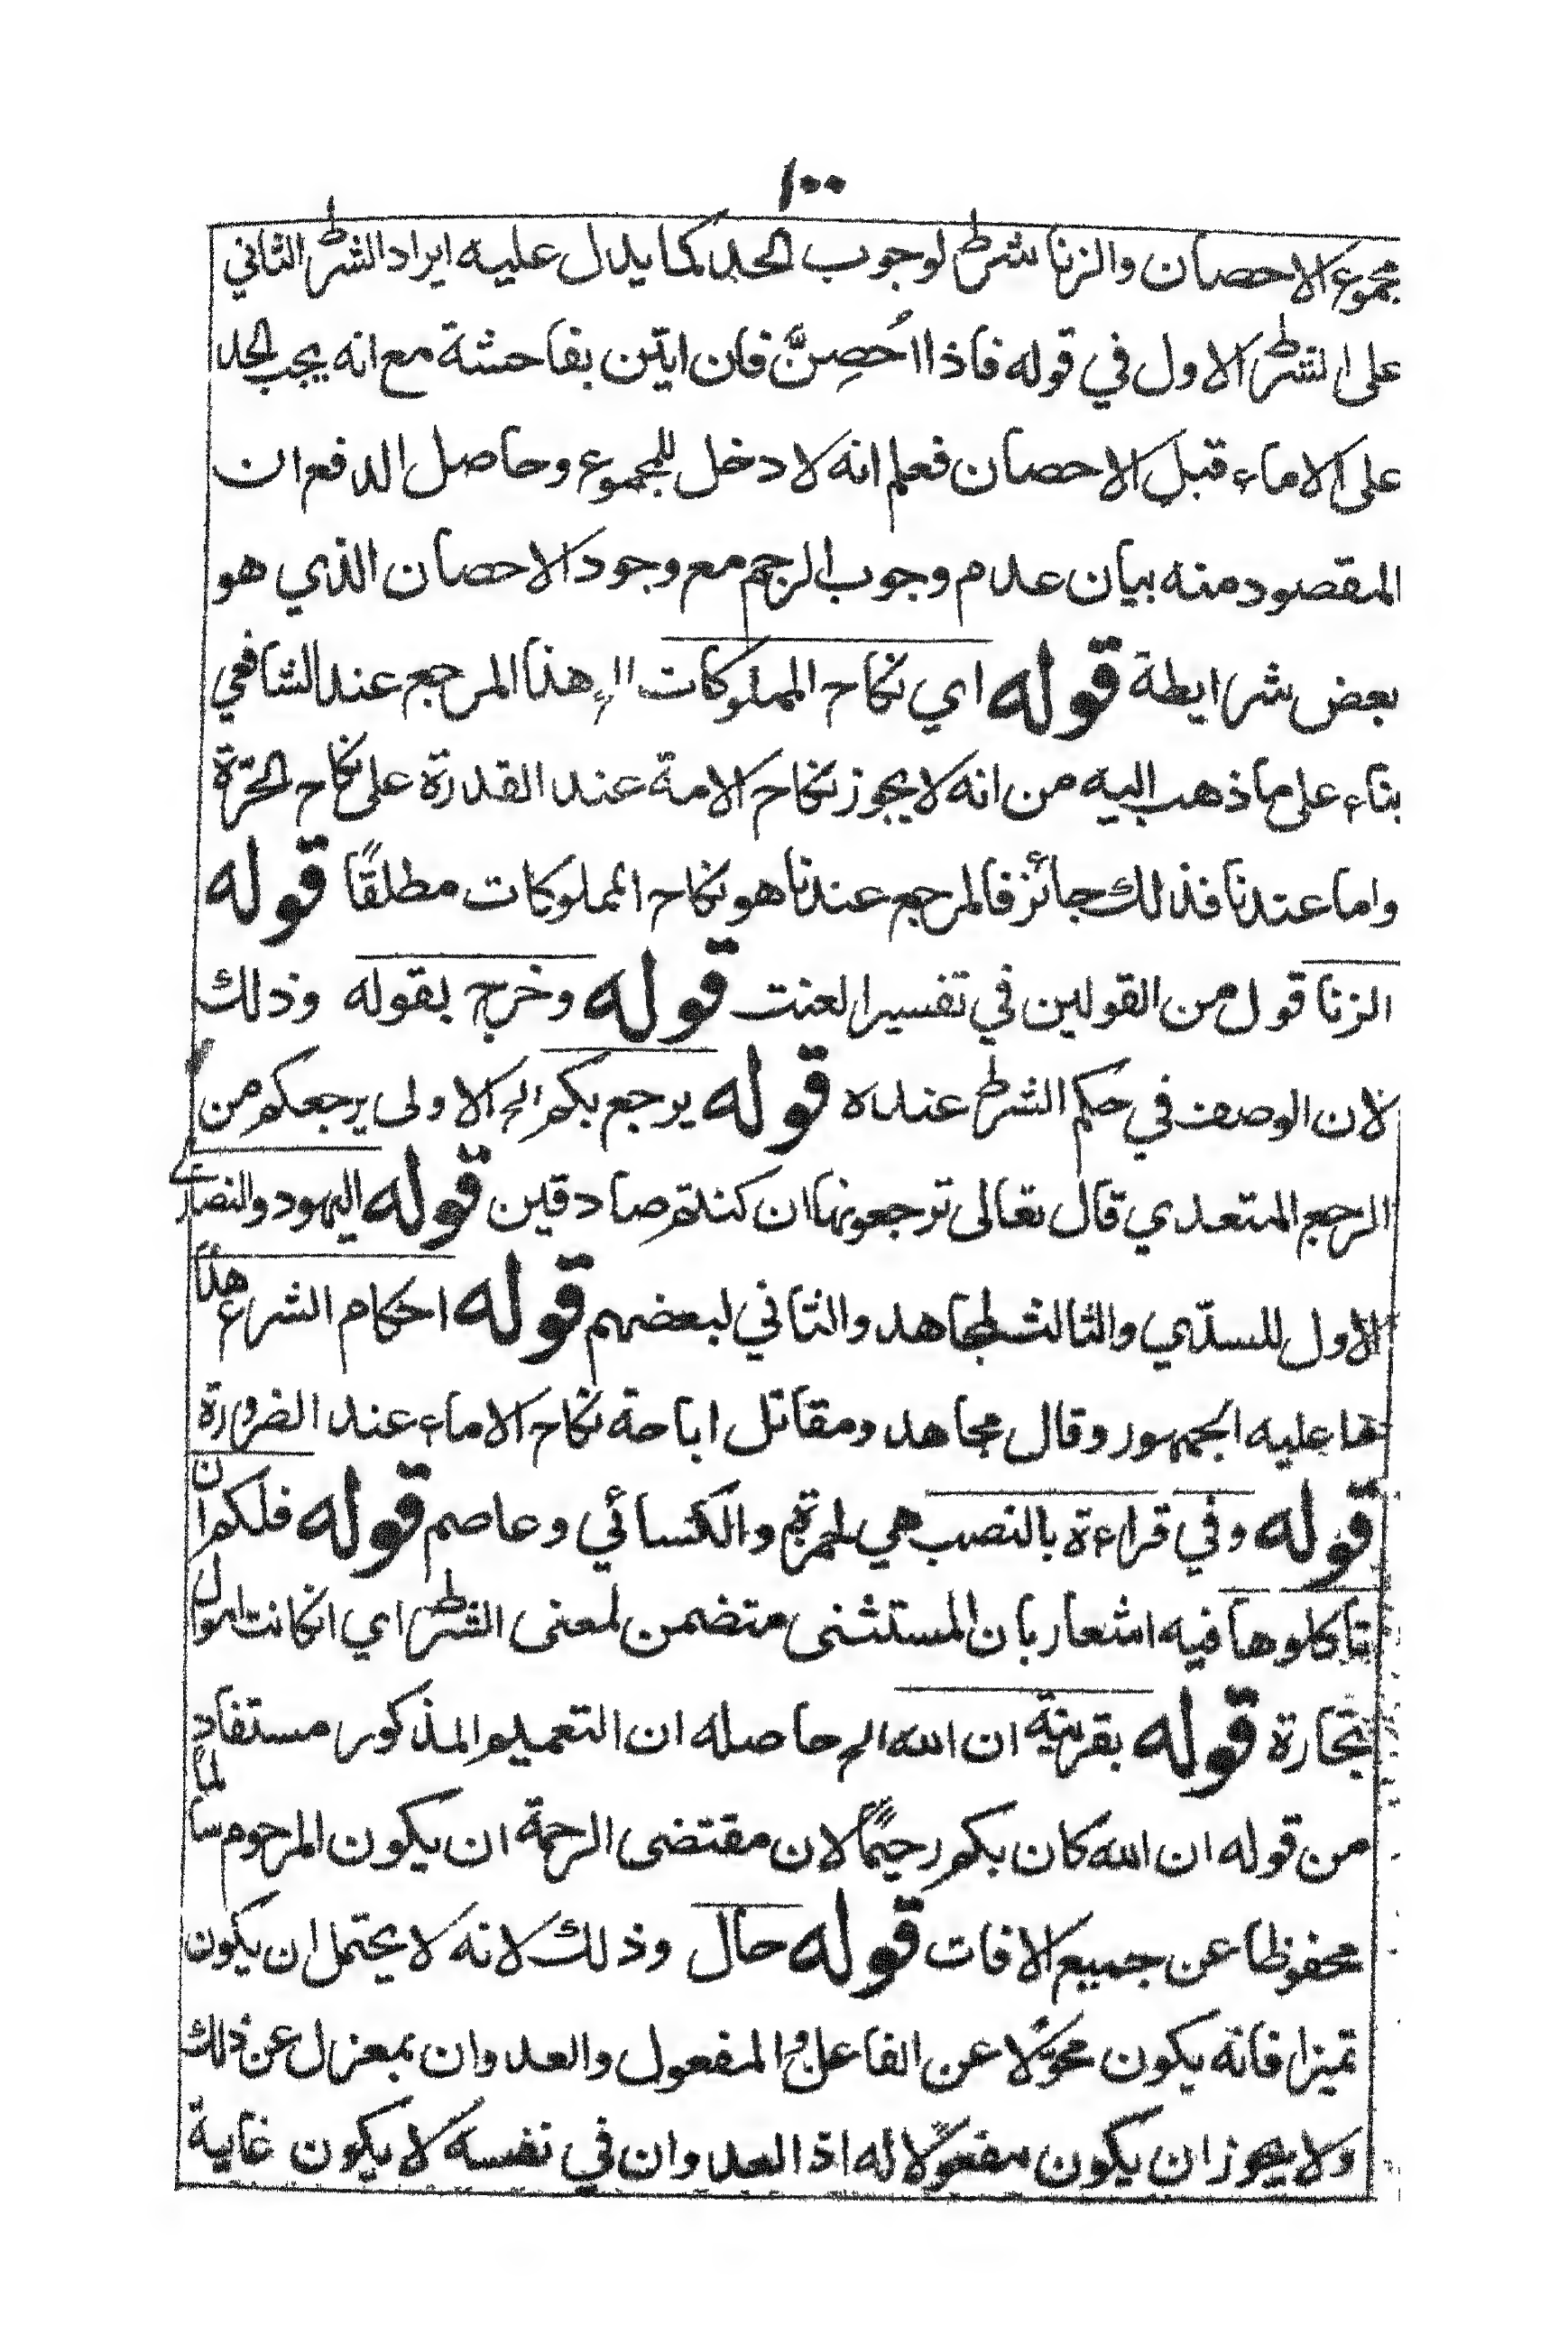 ١٠٠
مجموع الاحصان والزنا شرط لوجوب الحد كما يدل عليه ايراد الشرط الثاني
على الشرط الاول في قوله فاذا احُصِنَّ فان اتين بفاحشة مع انه يجب الحد
على الاماء قبل الاحصان فعلم انه لا دخل للمجموع وحاصل الدفع ان
المقصود منه بيان عدم وجوب الرجم مع وجود الاحصان الذي هو
بعض شرايطة قوله اي نكاح المملوكات الخ هذا المرجع عند الشافعي
بناء على ما ذهب اليه من انه لا يجوز نكاح الامة عند القدرة على نكاح الحرّة
واما عندنا فذلك جائز فالمرجع عندنا هو نكاح المملوكات مطلقًا قوله
الزنا قول من القولين في تفسير العنت قوله وخرج بقوله وذلك
لان الوصف في حكم الشرط عنده قوله يرجع بكم الخ الاولى يرجعكم من
الرجع المتعدي قال تعالى ترجعونها ان كنتم صادقين قوله اليهود والنصارى
الاول للسدّي والثالث لمجاهد والثاني لبعضهم قوله احكام الشرع هذا
ما عليه الجمهور وقال مجاهد ومقاتل اباحة نكاح الاماء عند الضرورة
قوله وفي قراءة بالنصب هي لحمزة والكسائي وعاصم قوله فلكم ان
تاكلوها فيه اشعار بان المستثنى متضمن لمعنى الشرط اي ان كانت اموال
تجارة قوله بقرينة ان الله الخ حاصله ان التعميم المذكور مستفاد
من قوله ان الله كان بكم رحيمًا لان مقتضى الرحمة ان يكون المرحوم سالمًا
محفوظا عن جميع الافات قوله حال وذلك لانه لا يحتمل ان يكون
تميزا فانه يكون محوّلا عن الفاعل او المفعول والعدوان بمعزل عن ذلك
ولا يجوز ان يكون مفعولًا له اذ العدوان في نفسه لا يكون غاية